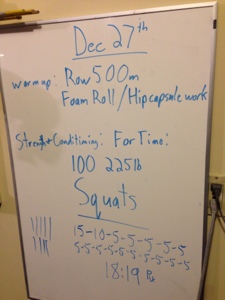 Dec 27th
warmup: Row 500m
Foam Roll / Hip capsule work
Strength + Conditioning: For Time:
100 225lb
Squats
15-10-5-5-5-5-5-5
5-5-5-5-5-5-5-5-5
18:19 Rx